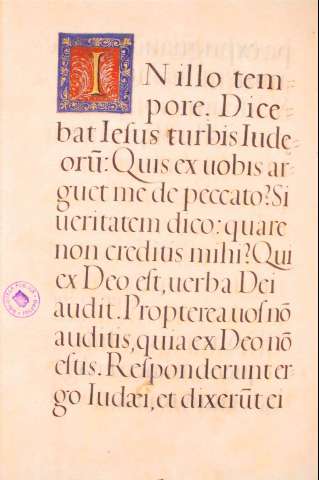 IN illo tem-
pore. Dice-
bat Iesus turbis Iude-
orū: Quis ex uobis ar-
guet me de peccato? Si
ueritatem dico: quare
non creditis mihi? Qui
ex Deo est, uerba Dei
audit. Propterea uos nō
auditis, quia ex Deo nō
estis. Responderunt er-
go Iudæi, et dixerūt ei